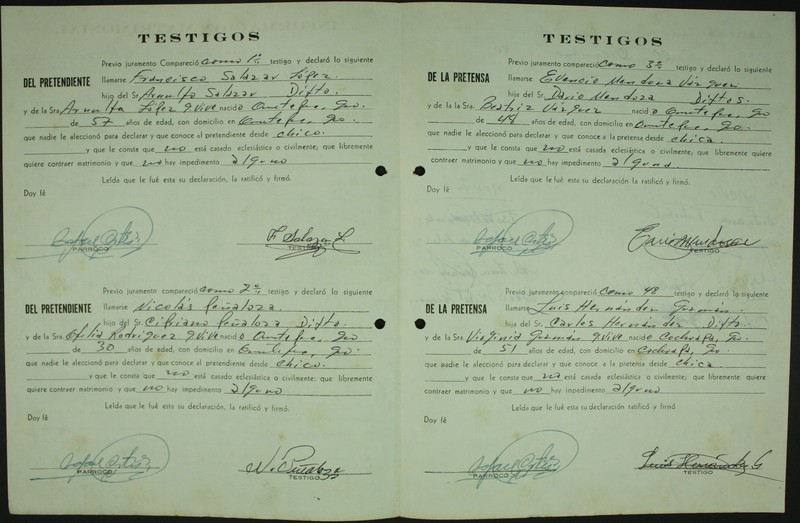 TESTIGOS
Previo juramento Compareció como 1º testigo y declaró lo siguiente
DEL PRETENDIENTE llamarse Francisco Salazar López.
hijo del Sr. Arnulfo Salazar Difto.
y de la Sra. López q. vive nació
de 57 años de edad, con domicilio en
que nadie le aleccionó para declarar y que conoce al pretendiente desde chico.
y que le consta que no está casado eclesiástica o civilmente; que libremente
quiere contraer matrimonio y que no hay impedimento alguno
Leída que le fué esta su declaración, la ratificó y firmó.
Doy fé
PARROCO
F. Salazar L.
TESTIGO
Previo juramento compareció como 2º testigo y declaró lo siguiente
DEL PRETENDIENTE llamarse Nicolás Peñaloza.
hijo del Sr. Cipriano Peñaloza Difto.
y de la Sra. Ofelia Rodríguez q. vive nació
de 30 años de edad, con domicilio en
que nadie le aleccionó para declarar y que conoce al pretendiente desde chico.
y que le consta que no está casado eclesiástica o civilmente: que libremente
quiere contraer matrimonio y que no hay impedimento alguno
Leída que le fué esta su declaración, la ratificó y firmó.
Doy fé
PARROCO
N. Peñaloza
TESTIGO
TESTIGOS
Previo juramento compareció como 3º testigo y declaró lo siguiente
DE LA PRETENSA llamarse Mendoza Vázquez
hijo del Sr. Darío Mendoza Diftos.
y de la la Sra. Beatriz Vázquez nació
de 48 años de edad, con domicilio en
que nadie le aleccionó para declarar y que conoce a la pretensa desde chica.
y que le consta que no está casada eclesiástica o civilmente; que libremente quiere
contraer matrimonio y que no hay impedimento alguno.
Leída que le fué esta su declaración, la ratificó y firmó.
Doy fé
PARROCO
TESTIGO
Previo juramento compareció como 4º testigo y declaró lo siguiente
DE LA PRETENSA llamarse Luis Hernández Guzmán
hija del Sr. Carlos Hernández Difto.
y de la Sra. Virginia Guzmán q. vive nació
de 51 años de edad, con domicilio en
que nadie le aleccionó para declarar y que conoce a la pretensa desde chica
y que le consta que no está casada eclesiástica o civilmente; que libremente quiere
contraer matrimonio y que no hay impedimento alguno
Leída que le fué esta su declaración, la ratificó y firmó.
Doy fé
PARROCO
Luis Hernández G
TESTIGO